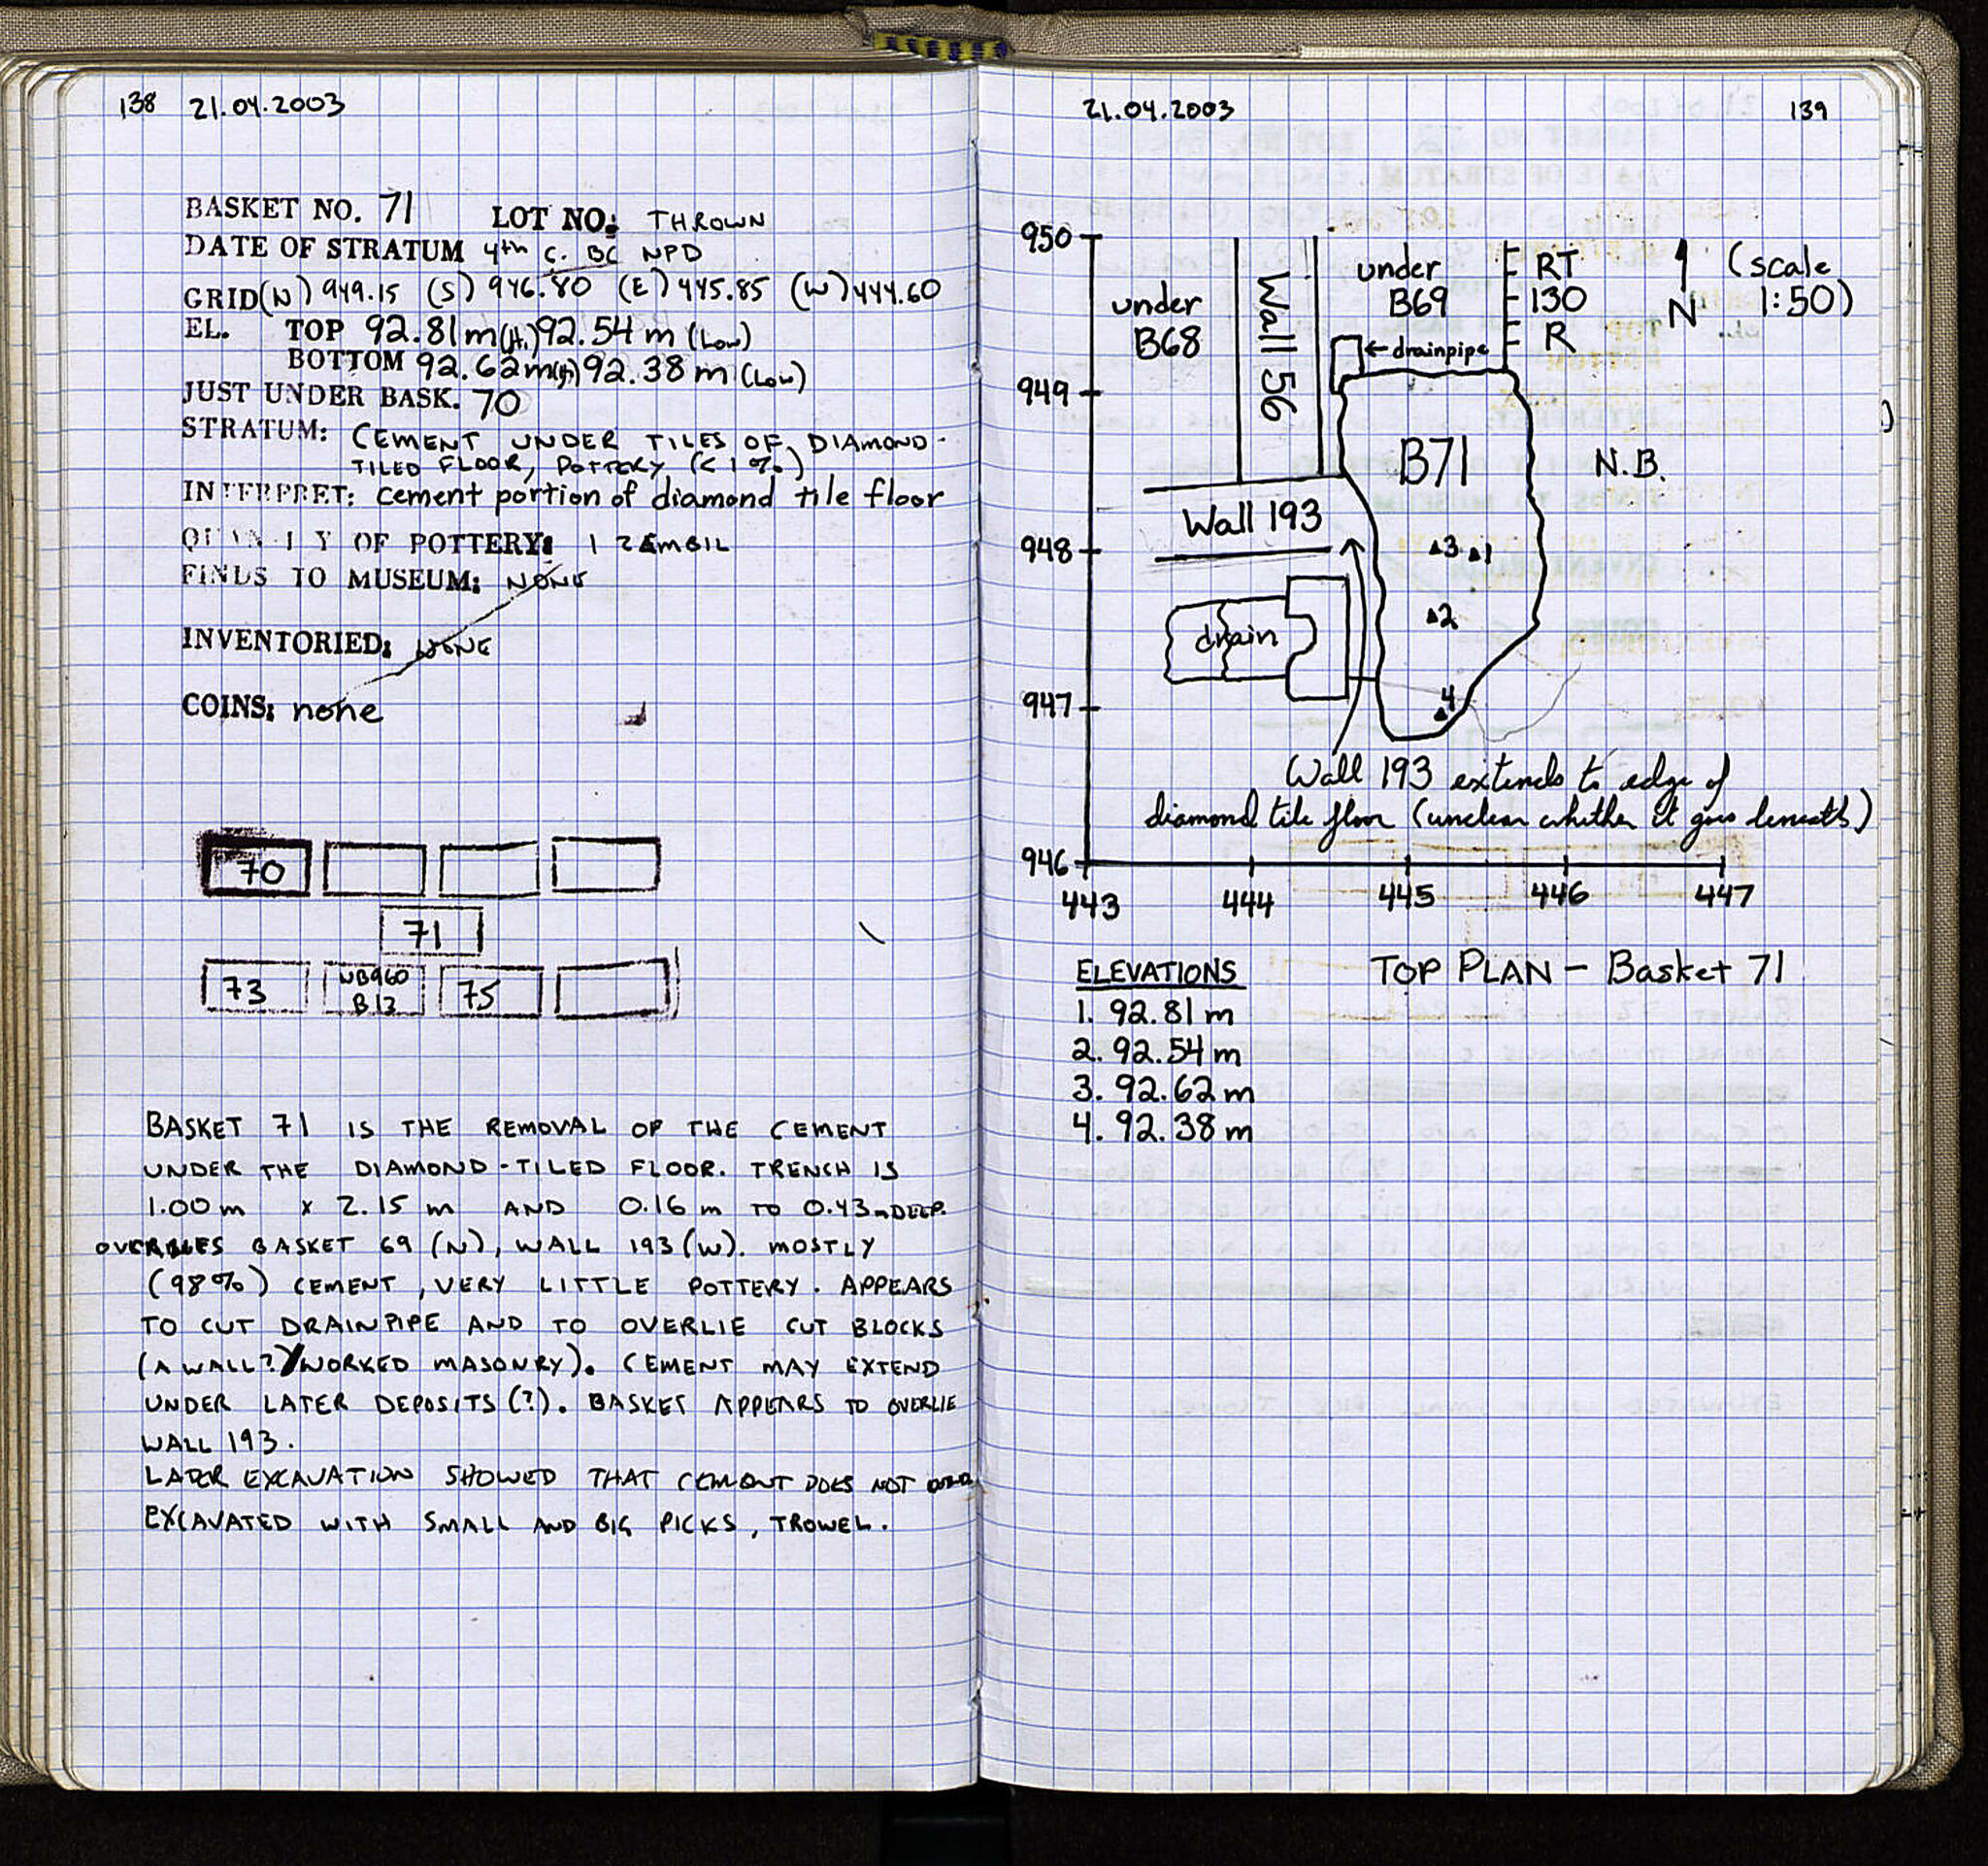 138 21.04.2003
BASKET NO. 71 LOT NO: THROWN
DATE OF STRATUM 4th C. BC NPD
GRID (N) 949.15 (S) 946.80 (E) 445.85 (W) 444.60
EL. TOP 92.81m (Hi) 92.54 m (Low)
BOTTOM 92.62m (Hi) 92.38 m (Low)
JUST UNDER BASK. 70
STRATUM: CEMENT UNDER TILES OF DIAMOND-
TILED FLOOR, POTTERY (<1%)
INTERPRET: cement portion of diamond tile floor
QUANTITY OF POTTERY: 1 ZEMBIL
FINDS TO MUSEUM: NONE
INVENTORIED: NONE
COINS: none
70
71
73 NB960 75
B 12
BASKET 71 IS THE REMOVAL OF THE CEMENT
UNDER THE DIAMOND-TILED FLOOR. TRENCH IS
1.00 m x 2.15 m AND 0.16 m TO 0.43m DEEP.
OVERLIES BASKET 69 (N), WALL 193 (W). MOSTLY
(98%) CEMENT, VERY LITTLE POTTERY. APPEARS
TO CUT DRAINPIPE AND TO OVERLIE CUT BLOCKS
(A WALL?)/WORKED MASONRY). CEMENT MAY EXTEND
UNDER LATER DEPOSITS (?). BASKET APPEARS TO OVERLIE
WALL 193.
LATER EXCAVATION SHOWED THAT CEMENT DOES NOT
EXCAVATED WITH SMALL AND BIG PICKS, TROWEL.
21.04.2003 139
950
949
948
947
946
443 444 445 446 447
under
B68
Wall 56
under
B69
RT
130
R
N
(scale
1:50)
←drainpipe
B71
N.B.
Wall 193
3 1
2
4
drain
Wall 193 extends to edge of
diamond tile floor (unclear whether it goes beneath)
TOP PLAN - Basket 71
ELEVATIONS
1. 92.81 m
2. 92.54 m
3. 92.62 m
4. 92.38 m